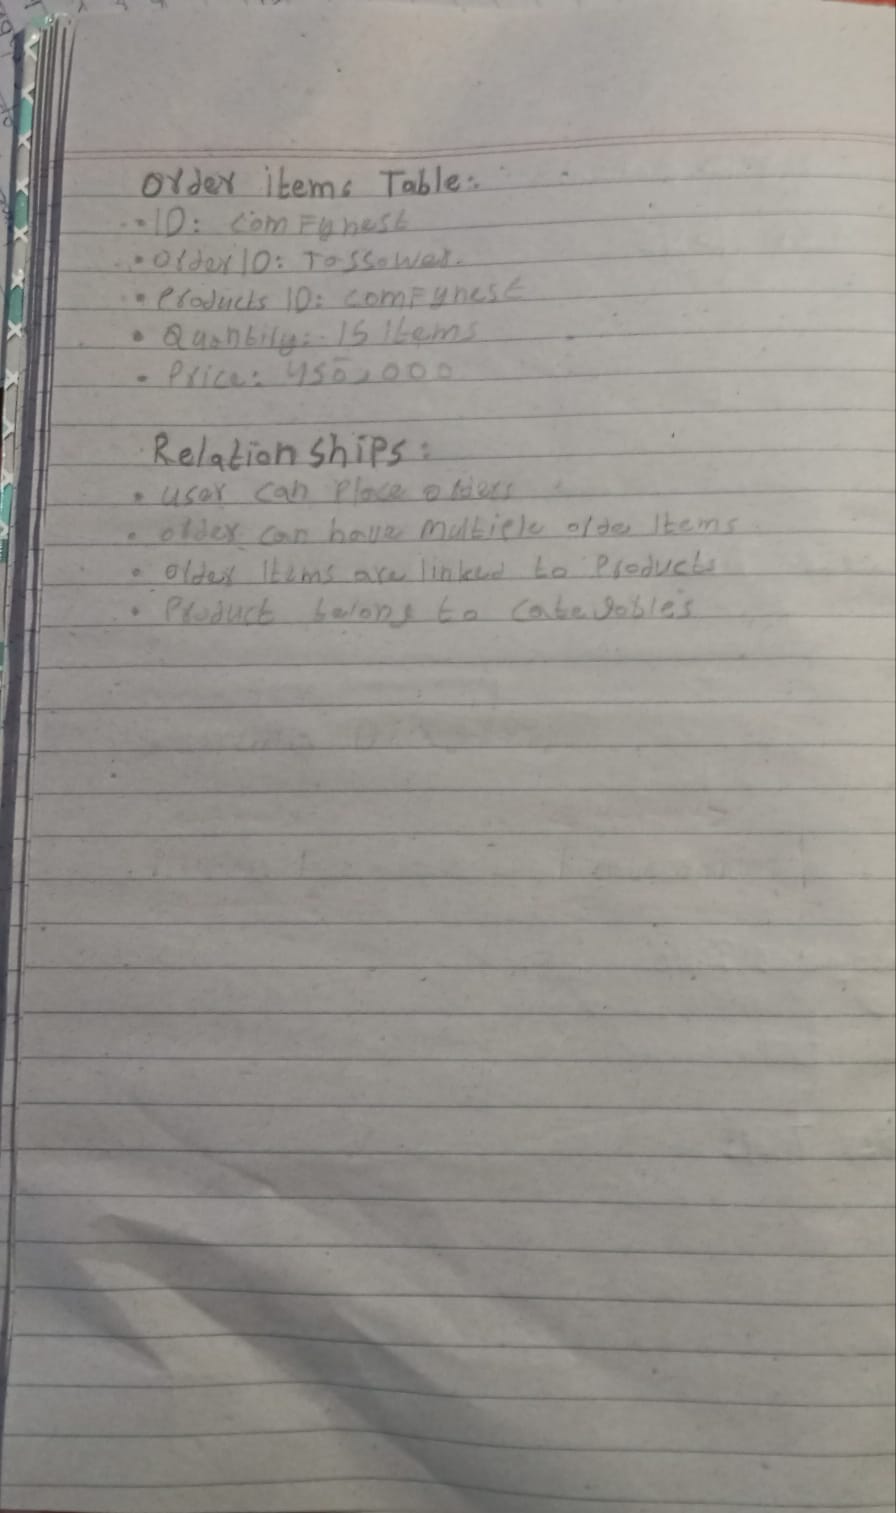 Order items Table:
• ID: comFynest
• Order ID: Tossowed.
• Products ID: comFynest
• Quantity: 15 Items
• Price: 450,000
Relationships:
• user can place orders
• order can have multiple order Items
• order Items are linked to Products
• Product belong to